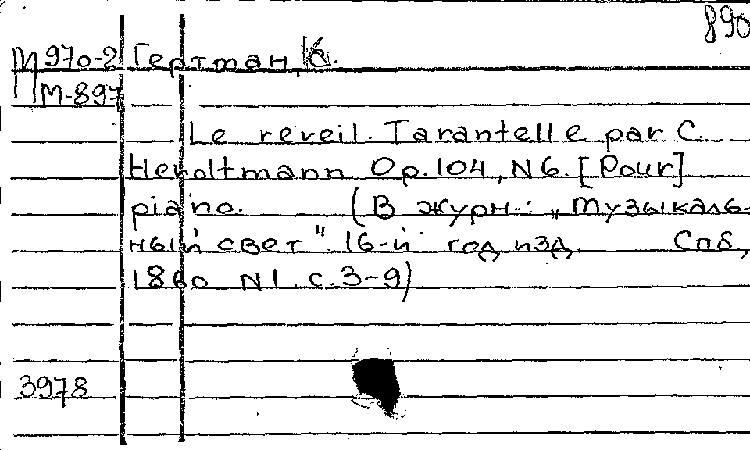 890
М970-2 Гертман, К.
М-897
Le reveil. Tarantelle par C.
Hevoltmann Op. 104, N6. [Pour]
piano. (В журн.: „Музыкаль-
ный свет". 16-й год изд. Спб,
1860 N1. с. 3-9)
3978